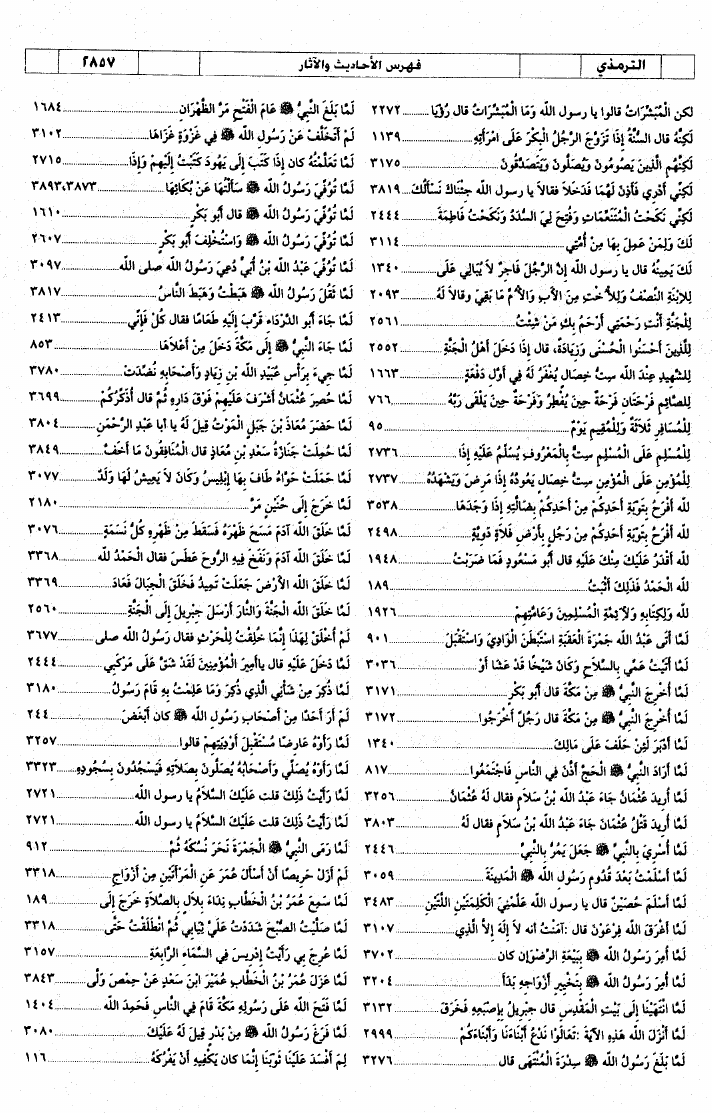 الترمذي
فهرس الأحاديث والآثار
٢٨٥٧
لكن الْمُبَشِّرَاتُ قالوا يا رسول الله وَمَا الْمُبَشِّرَاتُ قال رُؤْيَا ٢٢٧٢
لَكِنَّهُ قال السُّنَّةُ إِذَا تَزَوَّجَ الرَّجُلُ الْبِكْرَ عَلَى امْرَأَتِهِ ١١٣٩
لَكِنَّهُم الَّذِينَ يَصُومُونَ وَيُصَلُّونَ وَيَتَصَدَّقُونَ ٣١٧٥
لَكِنِّي أَدْرِي فَأَذِنَ لَهُمَا فَدَخَلَا فقالا يا رسول الله جِئْنَاكَ نَسْأَلُكَ ٣٨١٩
لَكِنِّي نَكَحْتُ الْمُتَنَعِّمَاتِ وَفُتِحَ لِيَ السُّدَدُ وَنَكَحْتُ فَاطِمَةَ ٢٤٤٤
لَكَ وَلِمَنْ عَمِلَ بِهَا مِنْ أُمَّتِي ٣١١٤
لَكَ يَمِينُهُ قال يا رسول الله إِنَّ الرَّجُلَ فَاجِرٌ لَا يُبَالِي عَلَى ١٣٤٠
لِلابْنَةِ النِّصْفُ وَلِلأُخْتِ مِنَ الأَبِ وَالأُمِّ مَا بَقِيَ وقالا لَهُ ٢٠٩٣
لِلْجَنَّةِ أَنْتِ رَحْمَتِي أَرْحَمُ بِكِ مَنْ شِئْتُ ٢٥٦١
لِلَّذِينَ أَحْسَنُوا الْحُسْنَى وَزِيَادَةٌ، قال إِذَا دَخَلَ أَهْلُ الْجَنَّةِ ٢٥٥٢
لِلشَّهِيدِ عِنْدَ الله سِتُّ خِصَالٍ يُغْفَرُ لَهُ فِي أَوَّلِ دَفْعَةٍ ١٦٦٣
لِلصَّائِمِ فَرْحَتَانِ فَرْحَةٌ حِينَ يُفْطِرُ وَفَرْحَةٌ حِينَ يَلْقَى رَبَّهُ ٧٦٦
لِلْمُسَافِرِ ثَلَاثَةٌ وَلِلْمُقِيمِ يَوْمٌ ٩٥
لِلْمُسْلِمِ عَلَى الْمُسْلِمِ سِتٌّ بِالْمَعْرُوفِ يُسَلِّمُ عَلَيْهِ إِذَا ٢٧٣٦
لِلْمُؤْمِنِ عَلَى الْمُؤْمِنِ سِتُّ خِصَالٍ يَعُودُهُ إِذَا مَرِضَ وَيَشْهَدُهُ ٢٧٣٧
لله أَفْرَحُ بِتَوْبَةِ أَحَدِكُمْ مِنْ أَحَدِكُمْ بِضَالَّتِهِ إِذَا وَجَدَهَا ٣٥٣٨
لله أَفْرَحُ بِتَوْبَةِ أَحَدِكُمْ مِنْ رَجُلٍ بِأَرْضِ فَلَاةٍ دَوِيَّةٍ ٢٤٩٨
لله أَقْدَرُ عَلَيْكَ مِنْكَ عَلَيْهِ قال أَبُو مَسْعُودٍ فَمَا ضَرَبْتُ ١٩٤٨
لله الْحَمْدُ فَذَلِكَ أَثْبَتُ ١٨٩
لله وَلِكِتَابِهِ وَلِأَئِمَّةِ الْمُسْلِمِينَ وَعَامَّتِهِمْ ١٩٢٦
لَمَّا أَتَى عَبْدُ الله جَمْرَةَ الْعَقَبَةِ اسْتَبْطَنَ الْوَادِيَ وَاسْتَقْبَلَ ٩٠١
لَمَّا أَتَيْتُ عَمِّي بِالسِّلَاحِ وَكَانَ شَيْخًا قَدْ عَشَا أَوْ ٣٠٣٦
لَمَّا أُخْرِجَ النَّبِيُّ ﷺ مِنْ مَكَّةَ قال أَبُو بَكْرٍ ٣١٧١
لَمَّا أُخْرِجَ النَّبِيُّ ﷺ مِنْ مَكَّةَ قال رَجُلٌ أَخْرَجُوا ٣١٧٢
لَمَّا أَدْبَرَ لَئِنْ حَلَفَ عَلَى مَالِكَ ١٣٤٠
لَمَّا أَرَادَ النَّبِيُّ ﷺ الْحَجَّ أَذَّنَ فِي النَّاسِ فَاجْتَمَعُوا ٨١٧
لَمَّا أُرِيدَ عُثْمَانُ جَاءَ عَبْدُ الله بْنُ سَلَامٍ فقال لَهُ عُثْمَانُ ٣٢٥٦
لَمَّا أُرِيدَ قَتْلُ عُثْمَانَ جَاءَ عَبْدُ الله بْنُ سَلَامٍ فقال لَهُ ٣٨٠٣
لَمَّا أُسْرِيَ بِالنَّبِيِّ ﷺ جَعَلَ يَمُرُّ بِالنَّبِيِّ ٢٤٤٦
لَمَّا أَسْلَمْتُ بَعْدَ قُدُومِ رَسُولِ الله ﷺ الْمَدِينَةَ ٣٠٥٩
لَمَّا أَسْلَمَ حُصَيْنٌ قال يا رسول الله عَلِّمْنِيَ الْكَلِمَتَيْنِ اللَّتَيْنِ ٣٤٨٣
لَمَّا أَغْرَقَ الله فِرْعَوْنَ قال :آمَنْتُ أنه لاَ إِلَهَ إِلاَّ الَّذِي ٣١٠٧
لَمَّا أُمِرَ رَسُولُ الله ﷺ بِبَيْعَةِ الرِّضْوَانِ كان ٣٧٠٢
لَمَّا أُمِرَ رَسُولُ الله ﷺ بِتَخْيِيرِ أَزْوَاجِهِ بَدَأَ ٣٢٠٤
لَمَّا انْتَهَيْنَا إِلَى بَيْتِ الْمَقْدِسِ قال جِبْرِيلُ بِإِصْبَعِهِ فَخَرَقَ ٣١٣٢
لَمَّا أَنْزَلَ الله هَذِهِ الآيَةَ :تَعَالَوْا نَدْعُ أَبْنَاءَنَا وَأَبْنَاءَكُمْ ٢٩٩٩
لَمَّا بَلَغَ رَسُولُ الله ﷺ سِدْرَةَ الْمُنْتَهَى قال ٣٢٧٦
لَمَّا بَلَغَ النَّبِيُّ ﷺ عَامَ الْفَتْحِ مَرَّ الظَّهْرَانِ ١٦٨٤
لَمْ أَتَخَلَّفْ عَنْ رَسُولِ الله ﷺ فِي غَزْوَةٍ غَزَاهَا ٣١٠٢
لَمَّا تَعَلَّمْتُهُ كان إِذَا كَتَبَ إِلَى يَهُودَ كَتَبْتُ إِلَيْهِمْ وَإِذَا ٢٧١٥
لَمَّا تُوُفِّيَ رَسُولُ الله ﷺ سَأَلْتُهَا عَنْ بُكَائِهَا ٣٨٧٣، ٣٨٩٣
لَمَّا تُوُفِّيَ رَسُولُ الله ﷺ قال أَبُو بَكْرٍ ١٦١٠
لَمَّا تُوُفِّيَ رَسُولُ الله ﷺ وَاسْتُخْلِفَ أَبُو بَكْرٍ ٢٦٠٧
لَمَّا تُوُفِّيَ عَبْدُ الله بْنُ أُبَيٍّ دُعِيَ رَسُولُ الله صلى الله ٣٠٩٧
لَمَّا ثَقُلَ رَسُولُ الله ﷺ هَبَطْتُ وَهَبَطَ النَّاسُ ٣٨١٧
لَمَّا جَاءَ أَبُو الدَّرْدَاءِ قَرَّبَ إِلَيْهِ طَعَامًا فقال كُلْ فَإِنِّي ٢٤١٣
لَمَّا جَاءَ النَّبِيُّ ﷺ إِلَى مَكَّةَ دَخَلَ مِنْ أَعْلَاهَا ٨٥٣
لَمَّا جِيءَ بِرَأْسِ عُبَيْدِ الله بْنِ زِيَادٍ وَأَصْحَابِهِ نُضِّدَتْ ٣٧٨٠
لَمَّا حُصِرَ عُثْمَانُ أَشْرَفَ عَلَيْهِمْ فَوْقَ دَارِهِ ثُمَّ قال أُذَكِّرُكُمْ ٣٦٩٩
لَمَّا حَضَرَ مُعَاذَ بْنَ جَبَلٍ الْمَوْتُ قِيلَ لَهُ يا أبا عَبْدِ الرَّحْمَنِ ٣٨٠٤
لَمَّا حُمِلَتْ جَنَازَةُ سَعْدِ بْنِ مُعَاذٍ قال الْمُنَافِقُونَ مَا أَخَفَّ ٣٨٤٩
لَمَّا حَمَلَتْ حَوَّاءُ طَافَ بِهَا إِبْلِيسُ وَكَانَ لَا يَعِيشُ لَهَا وَلَدٌ ٣٠٧٧
لَمَّا خَرَجَ إِلَى حُنَيْنٍ مَرَّ ٢١٨٠
لَمَّا خَلَقَ الله آدَمَ مَسَحَ ظَهْرَهُ فَسَقَطَ مِنْ ظَهْرِهِ كُلُّ نَسَمَةٍ ٣٠٧٦
لَمَّا خَلَقَ الله آدَمَ وَنَفَخَ فِيهِ الرُّوحَ عَطَسَ فقال الْحَمْدُ لله ٣٣٦٨
لَمَّا خَلَقَ الله الأَرْضَ جَعَلَتْ تَمِيدُ فَخَلَقَ الْجِبَالَ فَعَادَ ٣٣٦٩
لَمَّا خَلَقَ الله الْجَنَّةَ وَالنَّارَ أَرْسَلَ جِبْرِيلَ إِلَى الْجَنَّةِ ٢٥٦٠
لَمْ أُخْلَقْ لِهَذَا إِنَّمَا خُلِقْتُ لِلْحَرْثِ فقال رَسُولُ الله صلى ٣٦٧٧
لَمَّا دَخَلَ عَلَيْهِ قال ياأَمِيرَ الْمُؤْمِنِينَ لَقَدْ شَقَّ عَلَى مَرْكَبِي ٢٤٤٤
لَمَّا ذُكِرَ مِنْ شَأْنِي الَّذِي ذُكِرَ وَمَا عَلِمْتُ بِهِ قَامَ رَسُولُ ٣١٨٠
لَمْ أَرَ أَحَدًا مِنْ أَصْحَابِ رَسُولِ الله ﷺ كان أَبْغَضَ ٢٤٤
لَمَّا رَأَوْهُ عَارِضًا مُسْتَقْبِلَ أَوْدِيَتِهِمْ قالوا ٣٢٥٧
لَمَّا رَأَوْهُ يُصَلِّي وَأَصْحَابُهُ يُصَلُّونَ بِصَلَاتِهِ فَيَسْجُدُونَ بِسُجُودِهِ ٣٣٢٣
لَمَّا رَأَيْتُ ذَلِكَ قلت عَلَيْكَ السَّلَامُ يا رسول الله ٢٧٢١
لَمَّا رَأَيْتُ ذَلِكَ قلت عَلَيْكَ السَّلَامُ يا رسول الله ٢٧٢١
لَمَّا رَمَى النَّبِيُّ ﷺ الْجَمْرَةَ نَحَرَ نُسُكَهُ ثُمَّ ٩١٢
لَمْ أَزَلْ حَرِيصًا أَنْ أَسْأَلَ عُمَرَ عَنِ الْمَرْأَتَيْنِ مِنْ أَزْوَاجِ ٣٣١٨
لَمَّا سَمِعَ عُمَرُ بْنُ الْخَطَّابِ نِدَاءَ بِلَالٍ بِالصَّلَاةِ خَرَجَ إِلَى ١٨٩
لَمَّا صَلَّيْتُ الصُّبْحَ شَدَدْتُ عَلَيَّ ثِيَابِي ثُمَّ انْطَلَقْتُ حَتَّى ٣٣١٨
لَمَّا عُرِجَ بِي رَأَيْتُ إِدْرِيسَ فِي السَّمَاءِ الرَّابِعَةِ ٣١٥٧
لَمَّا عَزَلَ عُمَرُ بْنُ الْخَطَّابِ عُمَيْرَ ابْنَ سَعْدٍ عَنْ حِمْصَ وَلَّى ٣٨٤٣
لَمَّا فَتَحَ الله عَلَى رَسُولِهِ مَكَّةَ قَامَ فِي النَّاسِ فَحَمِدَ الله ١٤٠٤
لَمَّا فَرَغَ رَسُولُ الله ﷺ مِنْ بَدْرٍ قِيلَ لَهُ عَلَيْكَ ٣٠٨٠
لِمَ أَفْسَدَ عَلَيْنَا ثَوْبَنَا إِنَّمَا كان يَكْفِيهِ أَنْ يَفْرُكَهُ ١١٦